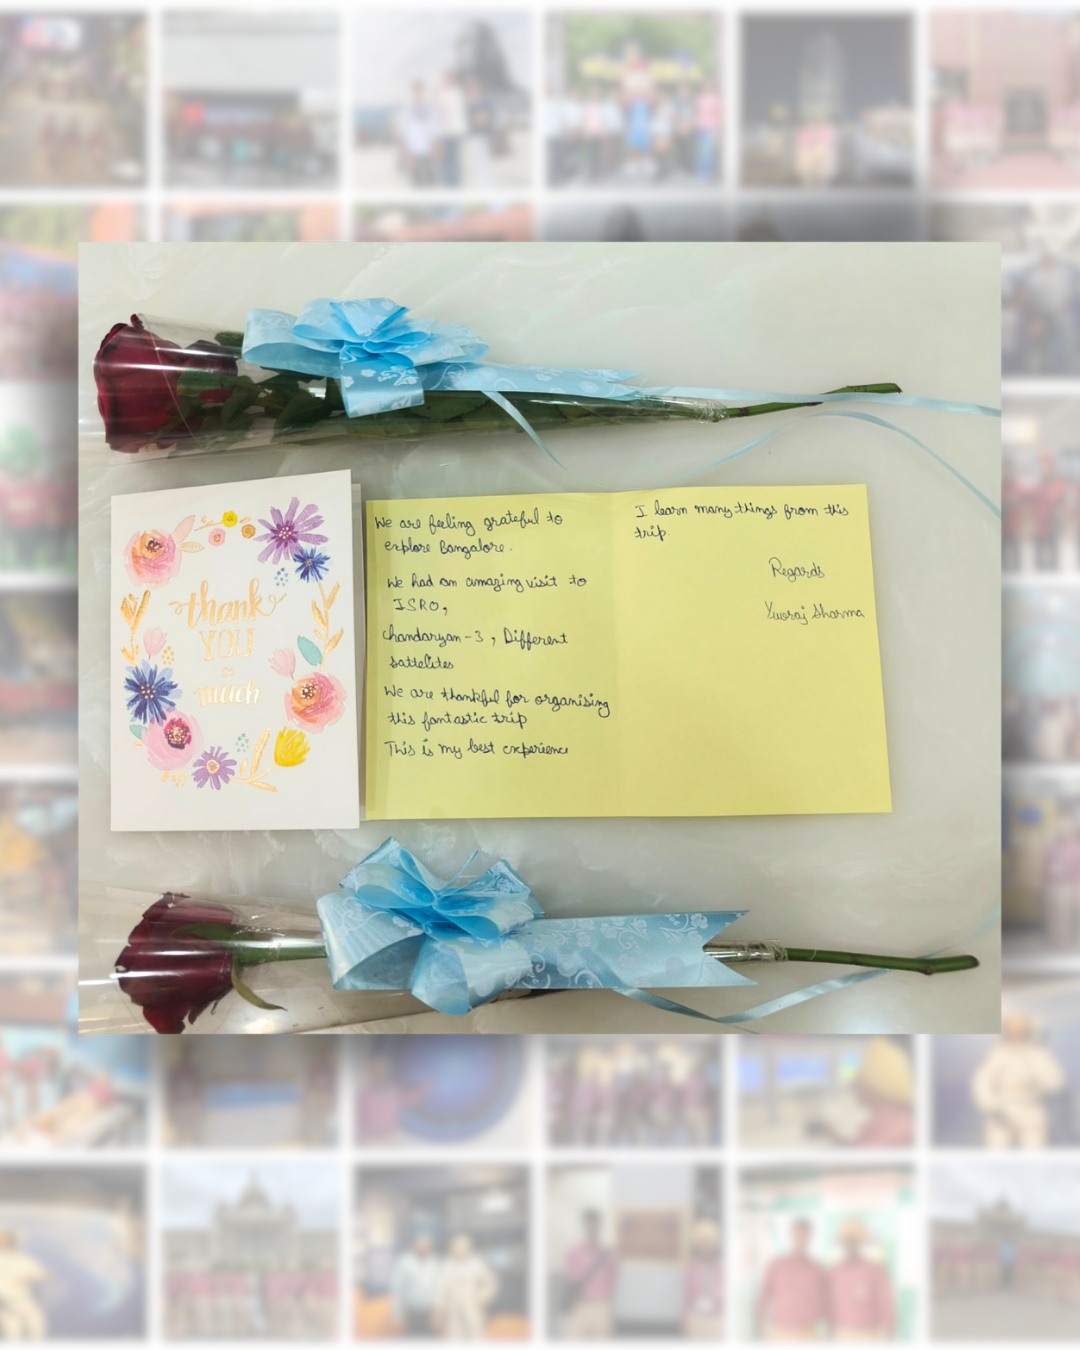 thank
YOU
so
much
We are feeling grateful to
explore Bangalore.
We had an amazing visit to
ISRO,
chandaryan-3, Different
sattelites
We are thankful for organising
this fantastic trip
This is my best experience
I learn many things from this
trip.
Regards
Yuvraj Sharma